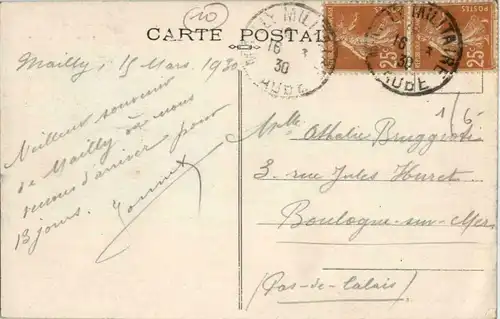 10
CARTE POSTALE
MAILLY MILITAIRE
16
30
AUBE
25c
POSTES
25c
Mailly, 15 Mars 1930
1/6
Meilleur souvenir
de Mailly où nous
venons d'arriver pour
13 jours.
Melle Athalie
3, rue Jules Huret
Boulogne-sur-Mer
(Pas-de-Calais)